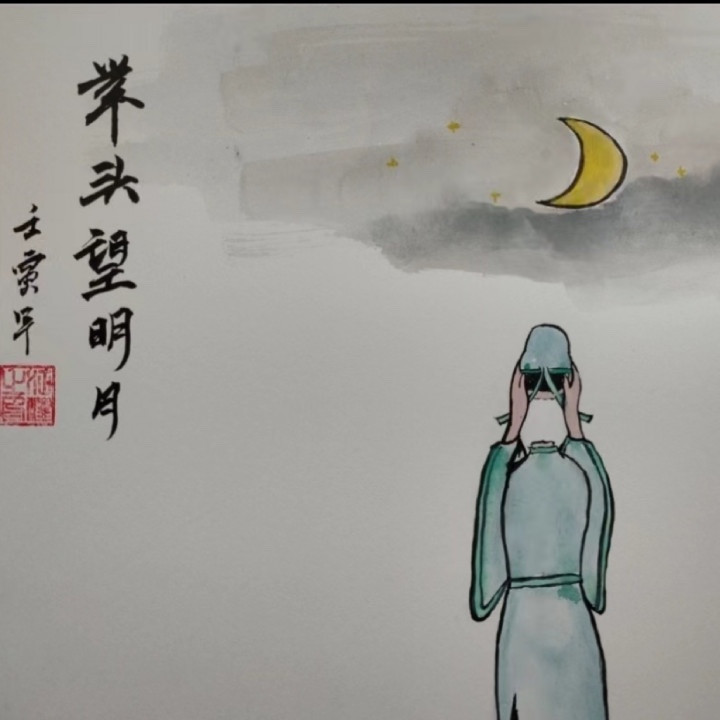 举头望明月
壬寅年